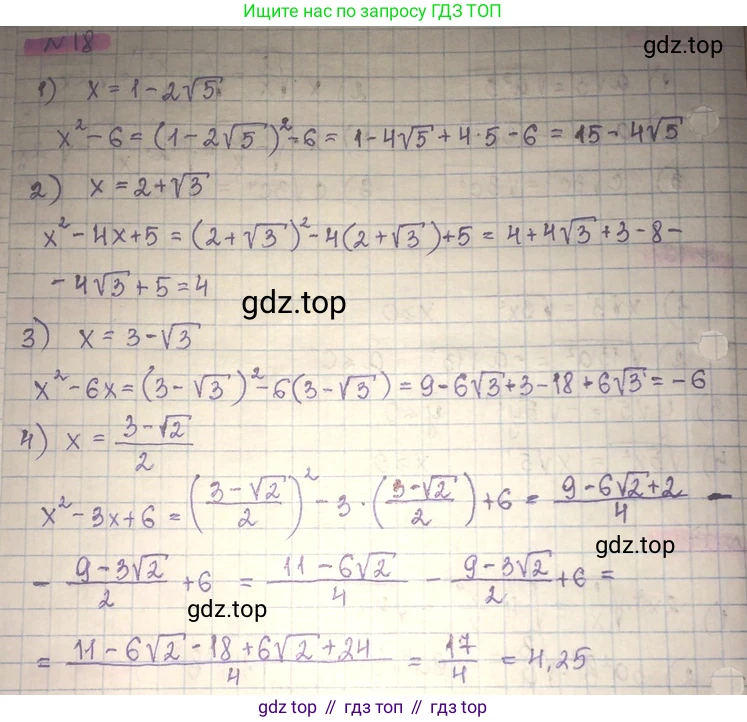 Ищите нас по запросу ГДЗ ТОП
№ 18
gdz.top
1) x = 1 - 2√5
x² - 6 = (1 - 2√5)² - 6 = 1 - 4√5 + 4·5 - 6 = 15 - 4√5
2) x = 2 + √3
x² - 4x + 5 = (2 + √3)² - 4(2 + √3) + 5 = 4 + 4√3 + 3 - 8 -
- 4√3 + 5 = 4
gdz.top
3) x = 3 - √3
x² - 6x = (3 - √3)² - 6(3 - √3) = 9 - 6√3 + 3 - 18 + 6√3 = -6
4) x = (3 - √2)/2
x² - 3x + 6 = ((3 - √2)/2)² - 3·((3 - √2)/2) + 6 = (9 - 6√2 + 2)/4 -
gdz.top
- (9 - 3√2)/2 + 6 = (11 - 6√2)/4 - (9 - 3√2)/2 + 6 =
gdz.top
= (11 - 6√2 - 18 + 6√2 + 24)/4 = 17/4 = 4,25
gdz.top // гдз топ // гдз.топ